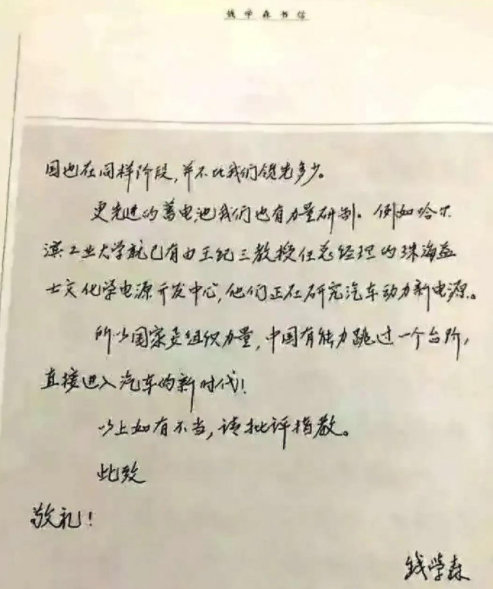 钱学森书信
国也在同样阶段，并不比我们领先多少。
更先进的蓄电池我们也有力量研制。例如哈尔
滨工业大学就已有由王纪三教授任总经理的珠海益
士文化学电源开发中心，他们正在研究汽车动力新电源。
所以国家要组织力量，中国有能力跳过一个台阶，
直接进入汽车的新时代！
以上如有不当，请批评指教。
此致
敬礼！
钱学森